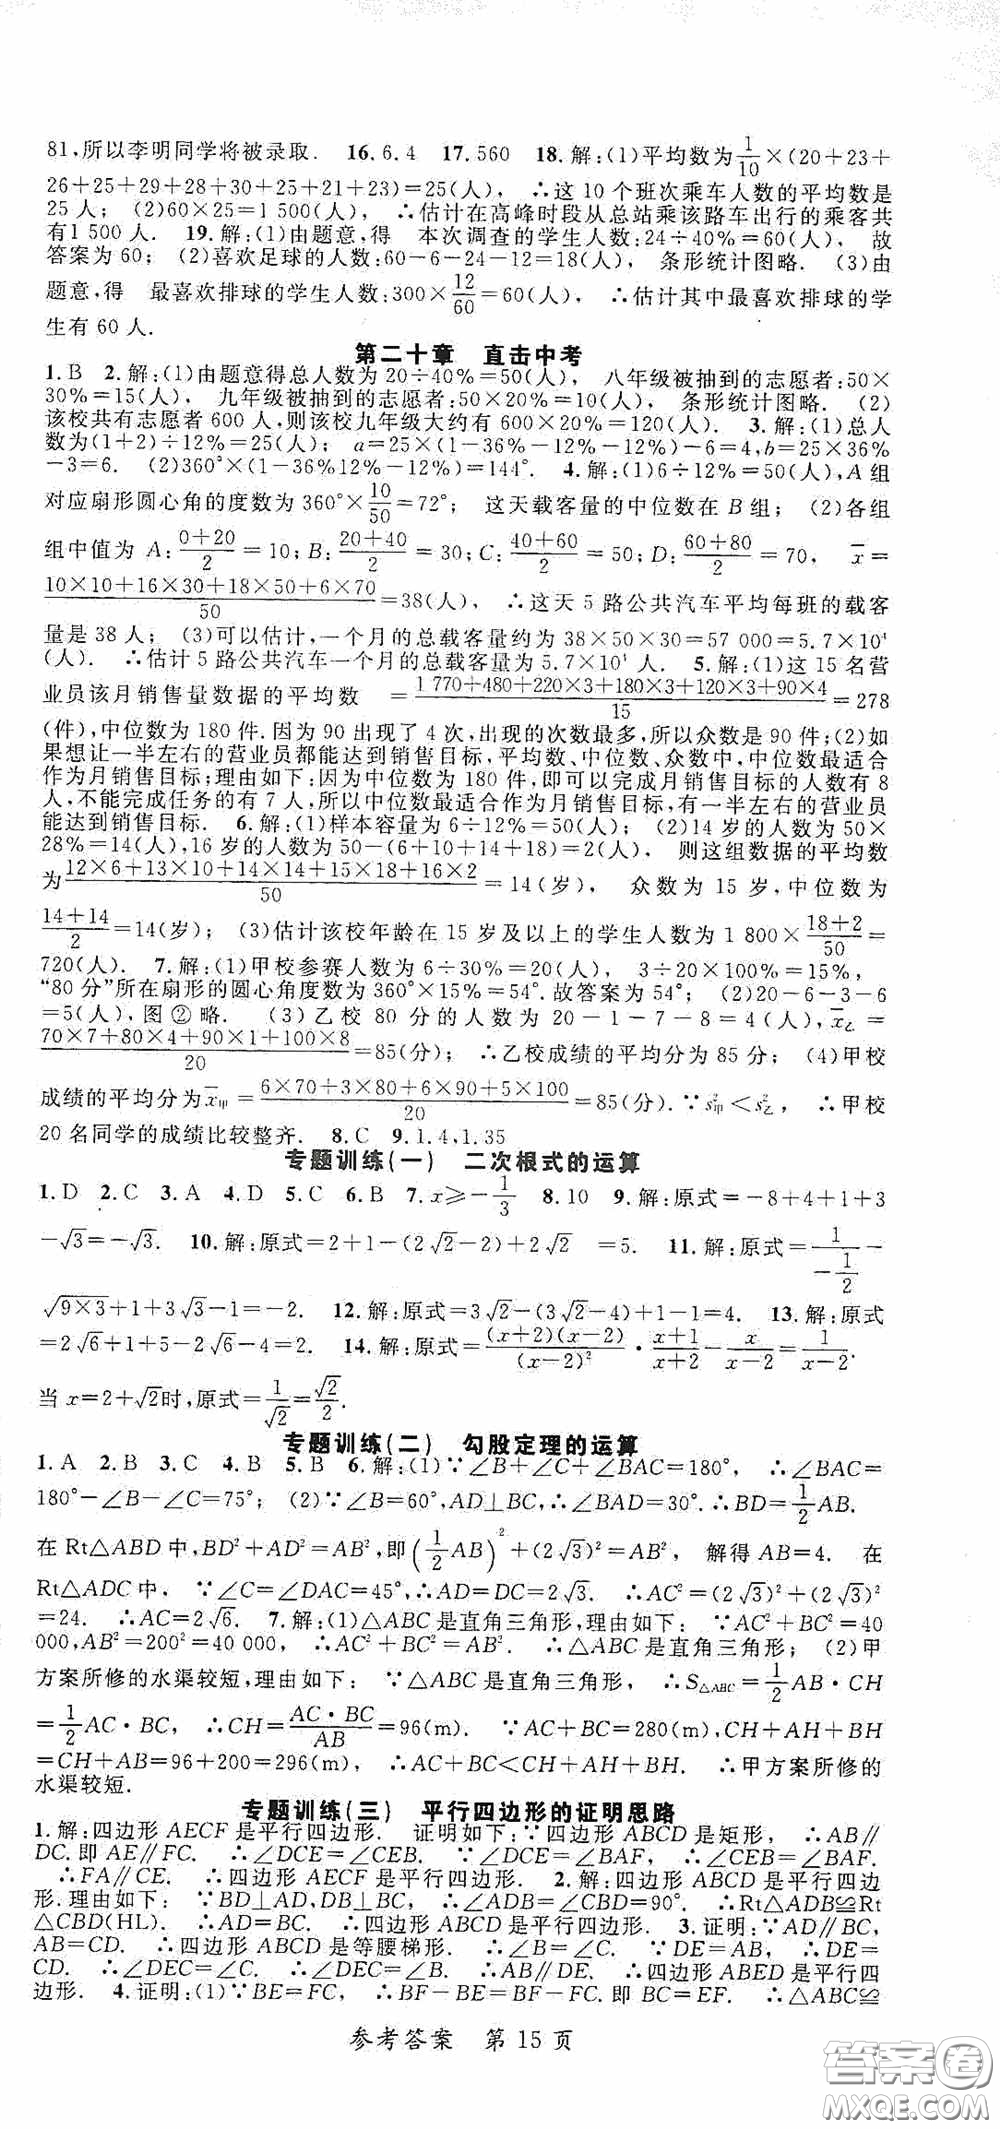 81,所以李明同学将被录取. 16.6.4 17.560 18.解:(1)平均数为1/10×(20+23+
26+25+29+28+30+25+21+23)=25(人), ∴这 10 个班次乘车人数的平均数是
25 人; (2)60×25=1 500(人), ∴估计在高峰时段从总站乘该路车出行的乘客共
有1 500 人. 19.解:(1)由题意,得 本次调查的学生人数:24÷40%=60(人), 故
答案为 60; (2)喜欢足球的人数:60-6-24-12=18(人), 条形统计图略. (3)由
题意,得 最喜欢排球的学生人数:300×12/60=60(人), ∴估计其中最喜欢排球的学
生有 60 人.
第二十章 直击中考
1.B 2.解:(1)由题意得总人数为 20÷40%=50(人), 八年级被抽到的志愿者:50×
30%=15(人), 九年级被抽到的志愿者:50×20%=10(人), 条形统计图略. (2)
该校共有志愿者 600 人,则该校九年级大约有 600×20%=120(人). 3.解:(1)总人
数为(1+2)÷12%=25(人); a=25×(1-36%-12%-12%)-6=4,b=25×36%
-3=6. (2)360°×(1-36%12%-12%)=144°. 4.解:(1)6÷12%=50(人),A 组
对应扇形圆心角的度数为 360°×10/50=72°; 这天载客量的中位数在 B 组; (2)各组
组中值为 A:(0+20)/2=10;B:(20+40)/2=30;C:(40+60)/2=50;D:(60+80)/2=70, x̄=
(10×10+16×30+18×50+6×70)/50=38(人), ∴这天 5 路公共汽车平均每班的载客
量是 38 人; (3)可以估计,一个月的总载客量约为 38×50×30=57 000=5.7×10⁴
(人). ∴估计 5 路公共汽车一个月的总载客量为 5.7×10⁴ 人. 5.解:(1)这 15 名营
业员该月销售量数据的平均数 =(1 770+480+220×3+180×3+120×3+90×4)/15=278
(件),中位数为 180 件.因为 90 出现了 4 次,出现的次数最多,所以众数是 90 件;(2)如
果想让一半左右的营业员都能达到销售目标,平均数、中位数、众数中,中位数最适合
作为月销售目标;理由如下:因为中位数为 180 件,即可以完成月销售目标的人数有 8
人,不能完成任务的有 7 人,所以中位数最适合作为月销售目标,有一半左右的营业员
能达到销售目标. 6.解:(1)样本容量为 6÷12%=50(人); (2)14 岁的人数为 50×
28%=14(人),16 岁的人数为 50-(6+10+14+18)=2(人), 则这组数据的平均数
为(12×6+13×10+14×14+15×18+16×2)/50=14(岁), 众数为 15 岁,中位数为
(14+14)/2=14(岁); (3)估计该校年龄在 15 岁及以上的学生人数为 1 800×(18+2)/50=
720(人). 7.解:(1)甲校参赛人数为 6÷30%=20(人), 3÷20×100%=15%,
“80 分”所在扇形的圆心角度数为 360°×15%=54°.故答案为 54°; (2)20-6-3-6
=5(人),图 ② 略. (3)乙校 80 分的人数为 20-1-7-8=4(人),x̄乙=
(70×7+80×4+90×1+100×8)/20=85(分); ∴乙校成绩的平均分为 85 分; (4)甲校
成绩的平均分为x̄甲=(6×70+3×80+6×90+5×100)/20=85(分).∵s²甲<s²乙, ∴甲校
20 名同学的成绩比较整齐. 8.C 9.1.4,1.35
专题训练(一) 二次根式的运算
1.D 2.C 3.A 4.D 5.C 6.B 7.x≥-1/3 8.10 9.解:原式=-8+4+1+3
-√3=-√3. 10.解:原式=2+1-(2√2-2)+2√2 =5. 11.解:原式=1/(-1/2)-
√(9×3)+1+3√3-1=-2. 12.解:原式=3√2-(3√2-4)+1-1=4. 13.解:原式
=2√6+1+5-2√6-4=2. 14.解:原式=(x+2)(x-2)/(x-2)²·(x+1)/(x+2)-x/(x-2)=1/(x-2).
当 x=2+√2时,原式=1/√2=√2/2.
专题训练(二) 勾股定理的运算
1.A 2.B 3.C 4.B 5.B 6.解:(1)∵∠B+∠C+∠BAC=180°, ∴∠BAC=
180°-∠B-∠C=75°; (2)∵∠B=60°,AD⊥BC,∴∠BAD=30°.∴BD=1/2AB.
在 Rt△ABD 中,BD²+AD²=AB²,即(1/2AB)²+(2√3)²=AB², 解得 AB=4. 在
Rt△ADC 中, ∵∠C=∠DAC=45°,∴AD=DC=2√3. ∴AC²=(2√3)²+(2√3)²
=24. ∴AC=2√6. 7.解:(1)△ABC 是直角三角形,理由如下: ∵AC²+BC²=40
000,AB²=200²=40 000, ∴AC²+BC²=AB². ∴△ABC 是直角三角形; (2)甲
方案所修的水渠较短,理由如下: ∵△ABC 是直角三角形, ∴S△ABC=1/2AB·CH
=1/2AC·BC, ∴CH=AC·BC/AB=96(m). ∵AC+BC=280(m),CH+AH+BH
=CH+AB=96+200=296(m), ∴AC+BC<CH+AH+BH. ∴甲方案所修的
水渠较短.
专题训练(三) 平行四边形的证明思路
1.解:四边形 AECF 是平行四边形. 证明如下:∵四边形 ABCD 是矩形, ∴AB∥
DC.即 AE∥FC. ∴∠DCE=∠CEB. ∵∠DCE=∠BAF, ∴∠CEB=∠BAF.
∴FA∥CE. ∴四边形 AECF 是平行四边形. 2.解:四边形 ABCD 是平行四边
形.理由如下: ∵BD⊥AD,DB⊥BC, ∴∠ADB=∠CBD=90°. ∴Rt△ADB≌Rt
△CBD(HL). ∴AD=BC. ∴四边形 ABCD 是平行四边形. 3.证明:∵AD∥BC,
AB=CD. ∴四边形 ABCD 是等腰梯形. ∴∠B=∠C. ∵DE=AB, ∴DE=
CD. ∴∠DEC=∠C. ∴∠DEC=∠B. ∴AB∥DE. ∴四边形 ABED 是平行四
边形. 4.证明:(1)∵BE=FC, ∴BF-BE=BF-FC.即 BC=EF. ∴△ABC≌
参考答案 第 15 页
答案卷
MXQE.COM